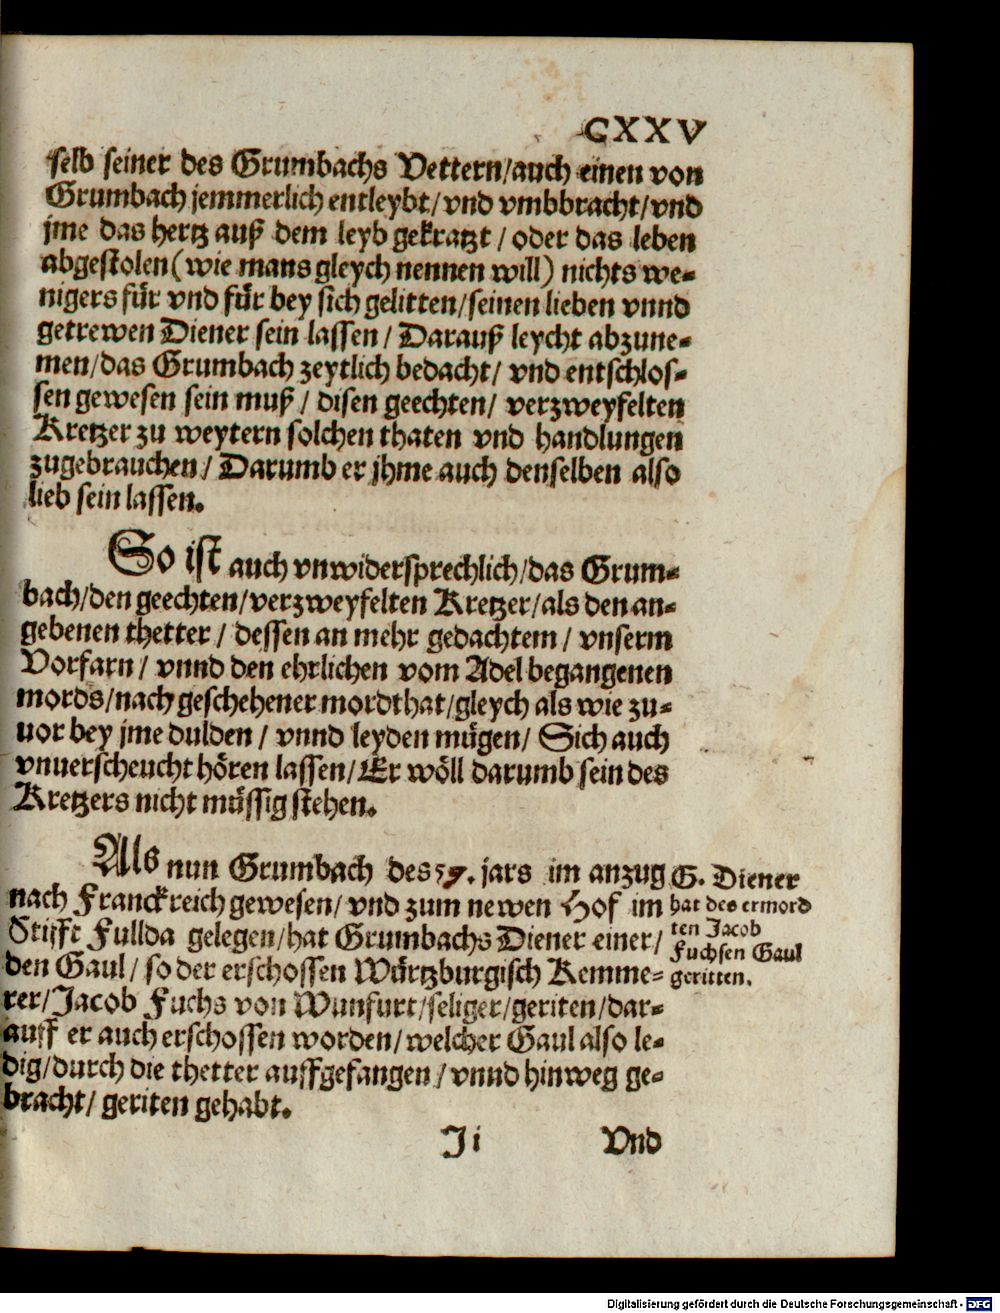 CXXV
selb seiner des Grumbachs Vettern/auch einen von
Grumbach jemmerlich entleybt/vnd vmbbracht/vnd
jme das hertz auß dem leyb gekratzt / oder das leben
abgestolen (wie mans gleych nennen will) nichts we-
nigers für vnd für bey sich gelitten/seinen lieben vnnd
getrewen Diener sein lassen / Darauß leycht abzune-
men/das Grumbach zeytlich bedacht/ vnd entschlos-
sen gewesen sein muß / disen geechten/ verzweyfelten
Kretzer zu weytern solchen thaten vnd handlungen
zugebrauchen / Darumb er jhme auch denselben also
lieb sein lassen.
So ist auch vnwidersprechlich/das Grum-
bach/den geechten/verzweyfelten Kretzer/als den an-
gebenen thetter / dessen an mehr gedachtem / vnserm
Vorfarn / vnnd den ehrlichen vom Adel begangenen
mords/nach geschehener mordthat/gleych als wie zu-
uor bey jme dulden / vnnd leyden mügen/ Sich auch
vnuerscheucht hören lassen/ Er wöll darumb sein des
Kretzers nicht müssig stehen.
Als nun Grumbach des 57. jars im anzug
nach Franckreich gewesen/ vnd zum newen Hof im
Stifft Fullda gelegen/hat Grumbachs Diener einer/
den Gaul / so der erschossen Würtzburgisch Kemme-
rer/Jacob Fuchs von Wunfurt/seliger/geriten/dar-
auff er auch erschossen worden/welcher Gaul also le-
dig/durch die thetter auffgefangen / vnnd hinweg ge-
bracht/ geriten gehabt.
G. Diener
hat des ermord
ten Jacob
Fuchsen Gaul
geritten.
Ji
Vnd
Digitalisierung gefördert durch die Deutsche Forschungsgemeinschaft - DFG